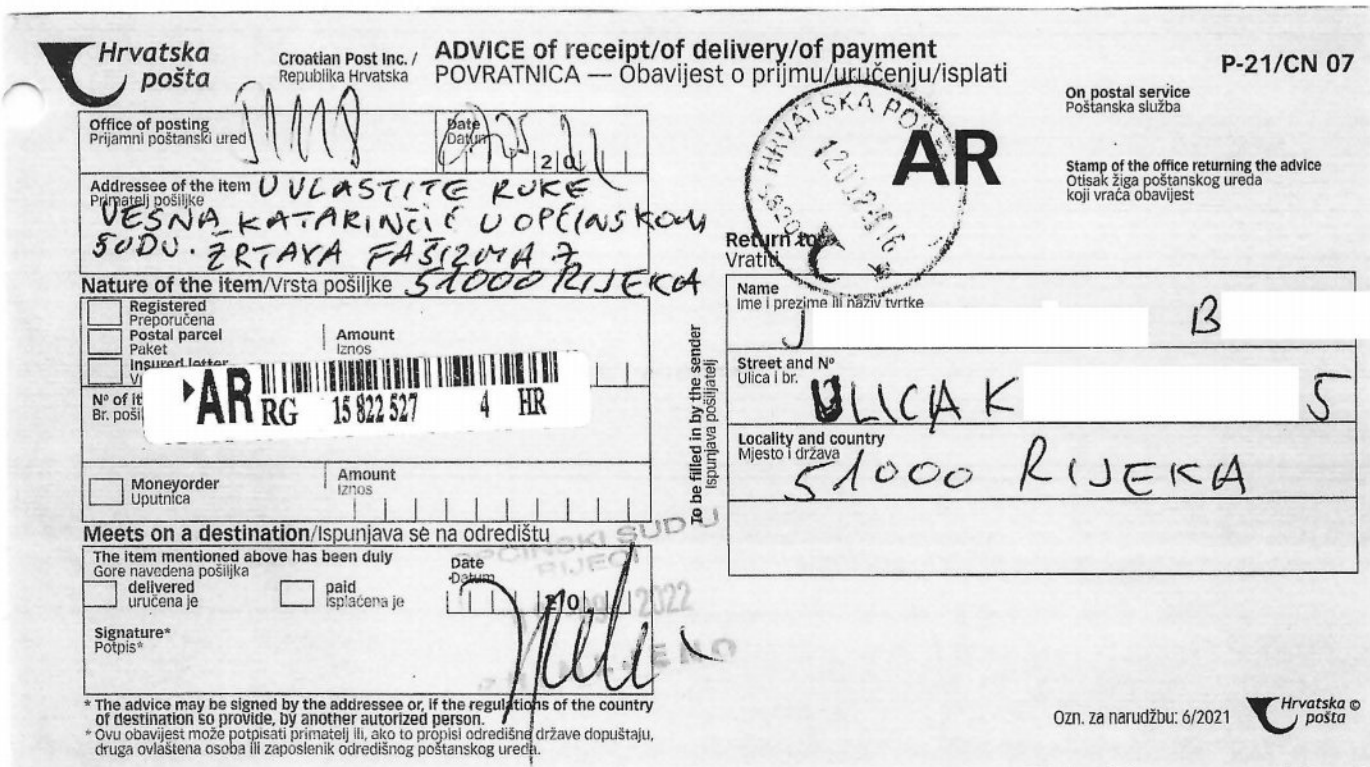 Hrvatska pošta
Croatian Post Inc. /
Republika Hrvatska
ADVICE of receipt/of delivery/of payment
POVRATNICA — Obavijest o prijmu/uručenju/isplati
P-21/CN 07
On postal service
Poštanska služba
AR
Stamp of the office returning the advice
Otisak žiga poštanskog ureda
koji vraća obavijest
HRVATSKA
Office of posting
Prijamni poštanski ured
Date
Datum
20
Addressee of the item U VLASTITE RUKE
Primatelj pošiljke
VESNA KATARINČIĆ U OPĆINSKOM
SUDU. ŽRTAVA FAŠIZMA 7
51000 RIJEKA
Nature of the item/Vrsta pošiljke
Registered
Preporučena
Postal parcel
Paket
Insured letter
Amount
Iznos
Nº of it
Br. pošil
AR RG 15 822 527 4 HR
Moneyorder
Uputnica
Amount
Iznos
Meets on a destination/Ispunjava se na odredištu
The item mentioned above has been duly
Gore navedena pošiljka
delivered
uručena je
paid
isplaćena je
Date
Datum
20
OPĆINSKI SUD U
RIJECI
2022
Signature*
Potpis*
* The advice may be signed by the addressee or, if the regulations of the country
of destination so provide, by another autorized person.
* Ovu obavijest može potpisati primatelj ili, ako to propisi odredišne države dopuštaju,
druga ovlaštena osoba ili zaposlenik odredišnog poštanskog ureda.
To be filled in by the sender
Ispunjava pošiljatelj
Return to
Vratiti
Name
Ime i prezime ili naziv tvrtke
J B
Street and Nº
Ulica i br.
ULICA K 5
Locality and country
Mjesto i država
51000 RIJEKA
Ozn. za narudžbu: 6/2021
Hrvatska pošta ©